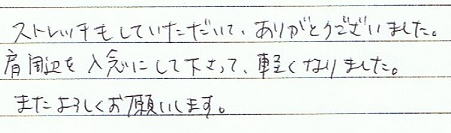 ストレッチもしていただいて、ありがとうございました。
肩周辺を入念にして下さって、軽くなりました。
またよろしくお願いします。